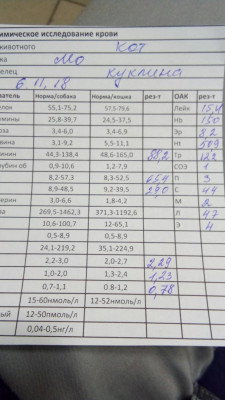 имическое исследование крови
ивотного кот
ка Мо
елец куклина
6 11, 18
затель Норма/собака Норма/кошка рез-т ОАК рез-т
лок 55,1-75,2 57,5-79,6 Лейк 15,1
мины 25,8-39,7 24,5-37,5 Hb 150
оза 3,4-6,0 3,4-6,9 Эр 8.2
вина 3,1-9,2 5,5-11,1 Ht 509
инин 44,3-138,4 48,6-165,0 88,2 Тр 122
рубин об 0,9-10,6 1,2-7,9 СОЭ 1
8,2-57,3 8,3-52,5 65,4 П 3
8,9-48,5 9,2-39,5 29,0 С 44
ерин 3,0-6,6 1,8-4,2 М 2
за 269,5-1462,3 371,3-1192,6 Л 47
10,6-100,7 12-65,1 Э 4
0,5-8,9 0,5-8,9
24,1-219,2 35,1-224,9
2,2-3,0 2,0-2,7 2,29
1,0-2,0 1,3-2,4 1,23
0,7-1,1 0.8-1,2 0,78
15-60нмоль/л 12-52нмоль/л
ый 12-50пмоль/л
0,04-0,5нг/л